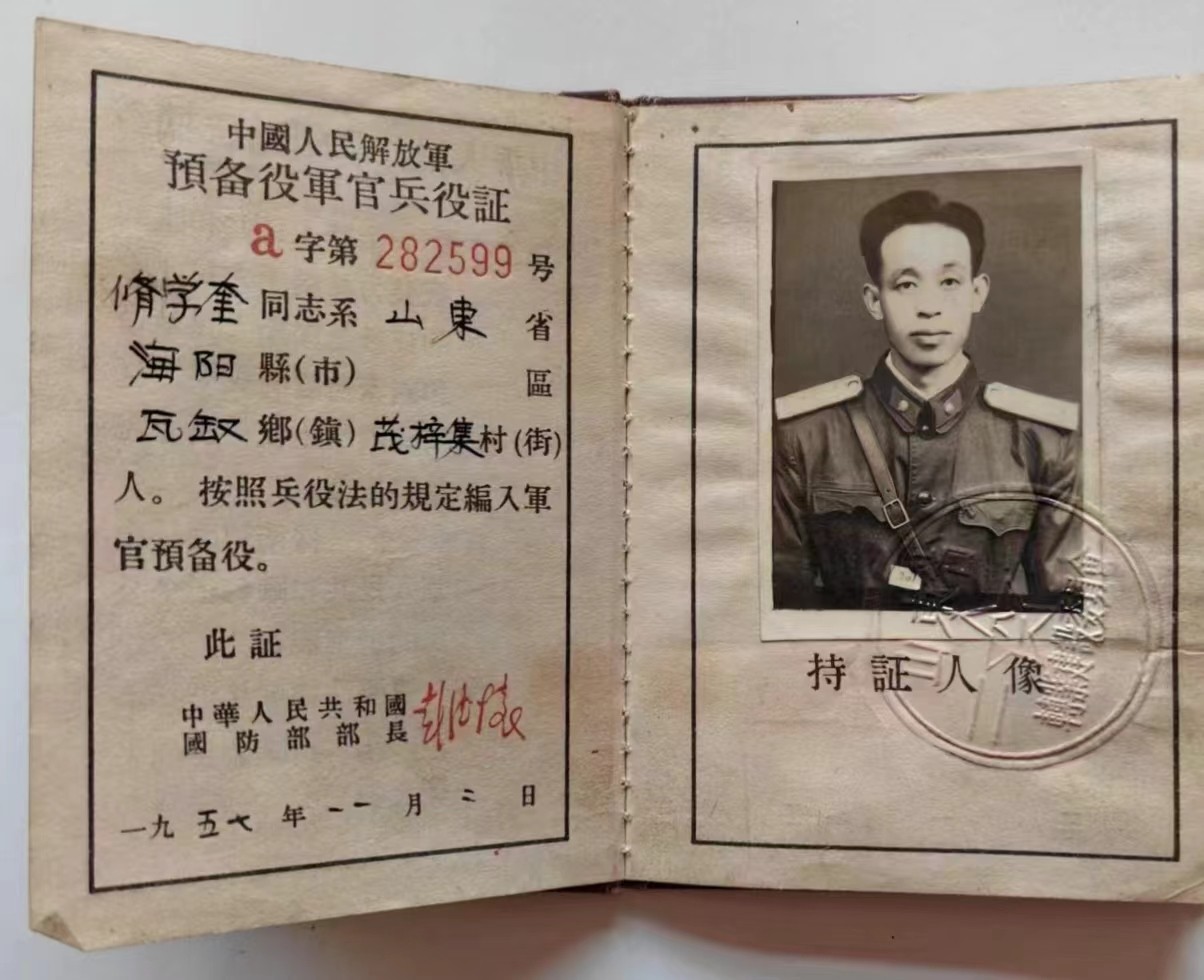 中國人民解放軍
預备役軍官兵役証
a 字第 282599 号
脩学奎 同志系 山東 省
海阳 縣(市) 區
瓦釵 鄉(鎮) 茂梓集村(街)
人。 按照兵役法的規定編入軍
官預备役。
此証
中華人民共和國
國防部部長 彭德懷
一九五七年 一一 月 二 日
持証人像